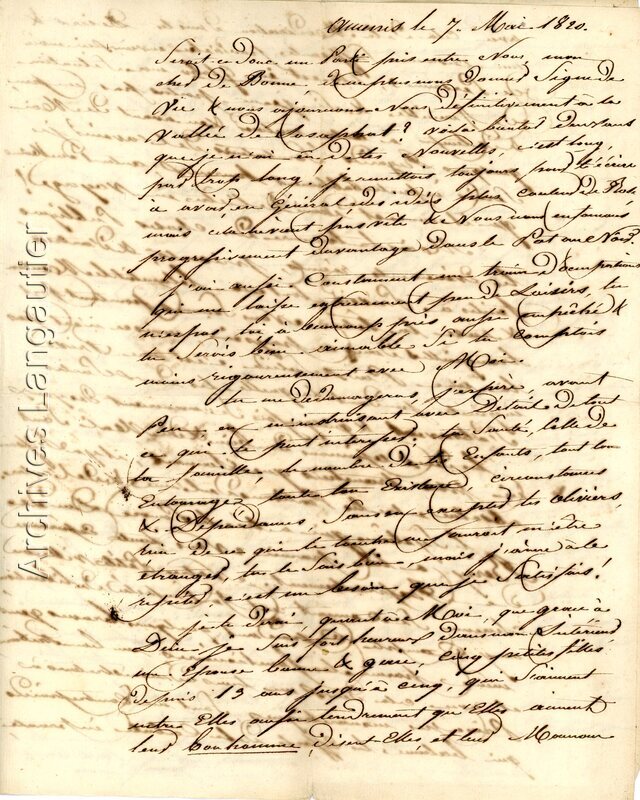 le 7. Mai 1820.
Seroit-ce donc un Parti pris entre Nous, mon
cher de Bonne, de ne plus nous donner Signe de
Vie & nous ajournons-Nous définitivement à la
Vallée de Josaphat? voilà bientôt deux ans
que je n'ai eu de tes Nouvelles, c'est long,
par trop long! je remettois toujours pour t'écrire
à avoir en Général des idées plus couleur de Rose
mais cela ne vient pas vite & Nous nous enfonçons
progressivement davantage dans le Pot au Noir.
J'ai aussi Constamment un train d'occupations
qui me laisse extrêmement peu de Loisirs, tu
n'es pas lui à beaucoup près aussi empêché &
tu serois bien aimable Si tu comptois
moins rigoureusement avec Moi.
Tu me dédomageras, j'espère, avant
Peu, en m'instruisant avec Détail de tout
ce qui te peut intéresser; ta Santé, celle de
ta famille, le nombre de tes Enfants, tout ton
Entourage, toute ton Existence, circonstances
& Dépendances, Sans en excepter tes oliviers,
rien de ce qui te touche ne pouvant m'être
étranger, tu le Sais bien, mais j'aime à le
répéter, c'est un besoin que je Satisfais!
je te dirai, quant à Moi, que grâce à
Dieu je Suis fort heureux dans mon Intérieur
une Epouse bonne & gaie, cinq petites filles
depuis 13 ans jusqu'à cinq, qui s'aiment
entre Elles aussi tendrement qu'Elles aiment
leur bonhomme, disent Elles, et leur Maman
Archives Langautier